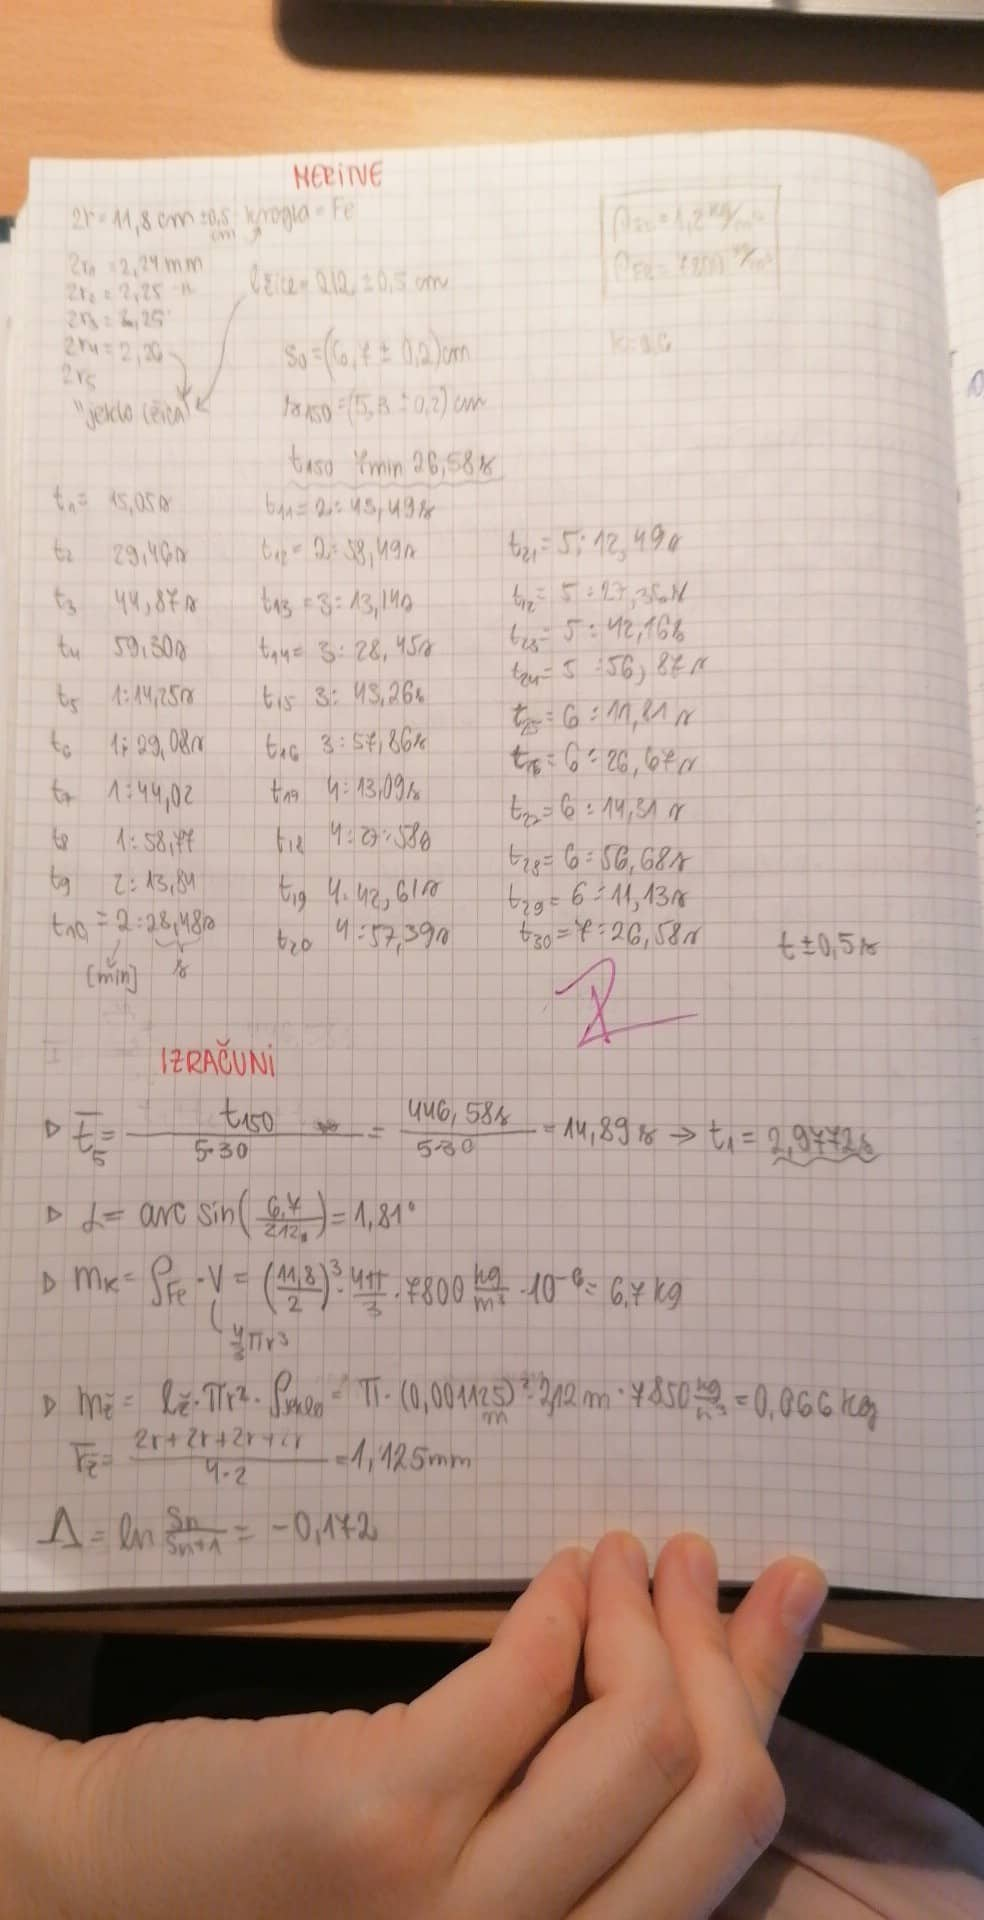 MERITVE
2r = 11,8 cm ±0,5 cm krogla = Fe
2r1 = 2,24 mm
2r2 = 2,25 -"-
2r3 = 2,25
2r4 = 2,26
2r5
"jeklo žica"
lžice = 212 ± 0,5 cm
s0 = (6,7 ± 0,2) cm
s150 = (5,8 ± 0,2) cm
t150 7min 26,58s
k = 0,6
t1 = 15,05s
t2 29,46s
t3 44,87s
t4 59,30s
t5 1:14,25s
t6 1:29,08s
t7 1:44,02
t8 1:58,77
t9 2:13,84
t10 = 2:28,48s
[min] s
t11 = 2:43,49s
t12 = 2:58,49s
t13 = 3:13,14s
t14 = 3:28,45s
t15 3:43,26s
t16 3:57,86s
t17 4:13,09s
t18 4:27:58s
t19 4:42,61s
t20 4:57,39s
t21 = 5:12,49s
t12 = 5:27,36s
t23 = 5:42,16s
t24 = 5:56,87s
t25 = 6:11,81s
t26 = 6:26,67s
t27 = 6:14,31s
t28 = 6:56,68s
t29 = 6:11,13s
t30 = 7:26,58s
t ± 0,5s
IZRAČUNI
▷ t̄5 = t150 / 5·30 = 446,58s / 5·30 = 14,89s → t1 = 2,9772s
▷ α = arc sin(6,7/212) = 1,81°
▷ mK = ρFe · V = (11,8/2)³ · 4π/3 · 7800 kg/m³ · 10⁻⁶ = 6,7 kg
4/3 πr³
▷ mž = lž · πr² · ρjeklo = π · (0,001125)² m · 2,12 m · 7850 kg/m³ = 0,066 kg
r̄ž = 2r+2r+2r+2r / 4·2 = 1,125mm
Λ = ln Sn/Sn+1 = -0,172